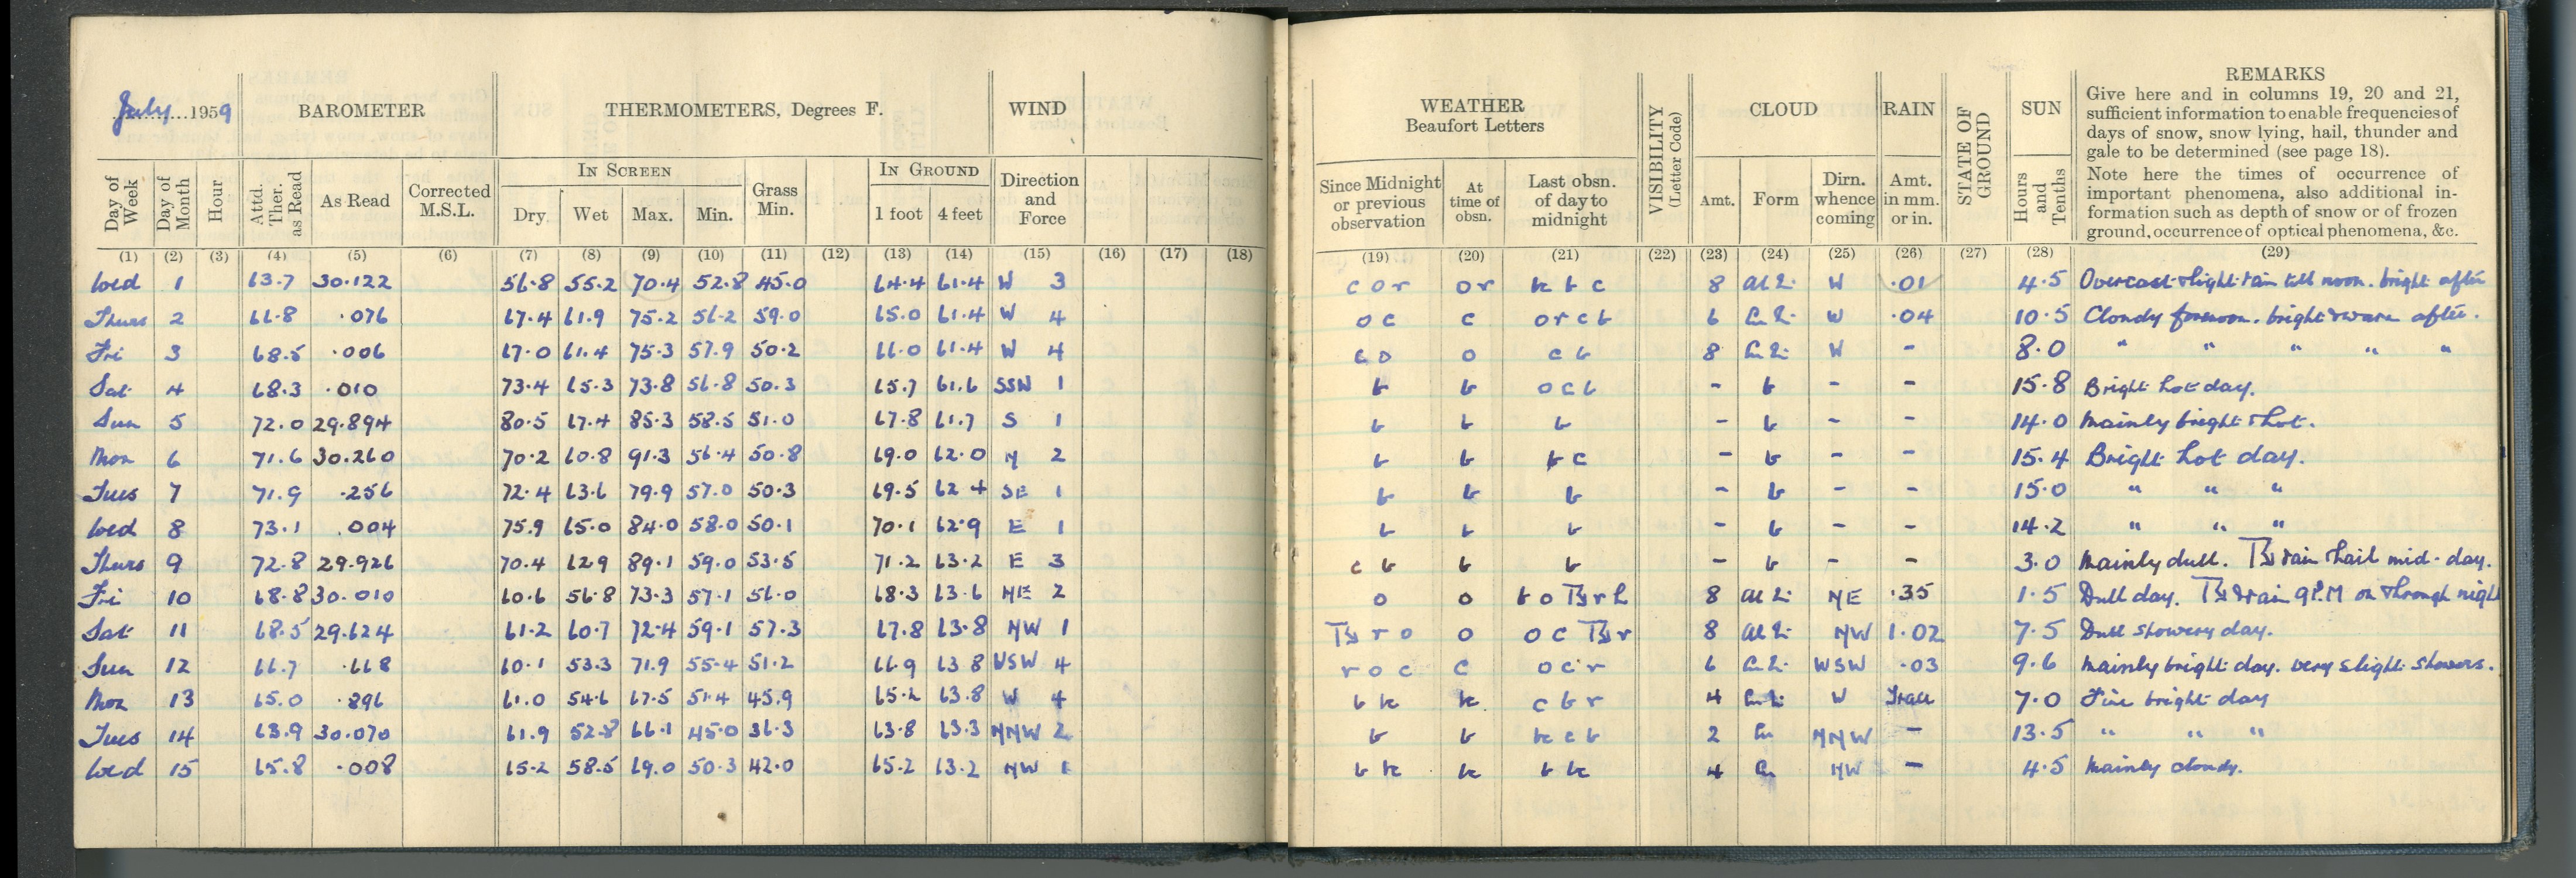 July 1959
BAROMETER
THERMOMETERS, Degrees F.
WIND
IN SCREEN
IN GROUND
Day of Week
Day of Month
Hour
Attd. Ther. as Read
As Read
Corrected M.S.L.
Dry.
Wet
Max.
Min.
Grass Min.
1 foot
4 feet
Direction and Force
(1) (2) (3) (4) (5) (6) (7) (8) (9) (10) (11) (12) (13) (14) (15) (16) (17) (18)
Wed 1 63.7 30.122 56.8 55.2 70.4 52.8 45.0 64.4 61.4 W 3
Thurs 2 66.8 .076 67.4 61.9 75.2 56.2 59.0 65.0 61.4 W 4
Fri 3 68.5 .006 67.0 61.4 75.3 57.9 50.2 66.0 61.4 W 4
Sat 4 68.3 .010 73.4 65.3 73.8 56.8 50.3 65.7 61.6 SSW 1
Sun 5 72.0 29.894 80.5 67.4 85.3 58.5 51.0 67.8 61.7 S 1
Mon 6 71.6 30.260 70.2 60.8 91.3 56.4 50.8 69.0 62.0 N 2
Tues 7 71.9 .256 72.4 63.6 79.9 57.0 50.3 69.5 62.4 SE 1
Wed 8 73.1 .004 75.9 65.0 84.0 58.0 50.1 70.1 62.9 E 1
Thurs 9 72.8 29.926 70.4 62.9 89.1 59.0 53.5 71.2 63.2 E 3
Fri 10 68.8 30.010 60.6 56.8 73.3 57.1 56.0 68.3 63.6 NE 2
Sat 11 68.5 29.624 61.2 60.7 72.4 59.1 57.3 67.8 63.8 NW 1
Sun 12 66.7 .668 60.1 53.3 71.9 55.4 51.2 66.9 63.8 WSW 4
Mon 13 65.0 .896 61.0 54.6 67.5 51.4 45.9 65.2 63.8 W 4
Tues 14 63.9 30.070 61.9 52.8 66.1 45.0 36.3 63.8 63.3 NNW 2
Wed 15 65.8 .008 65.2 58.5 69.0 50.3 42.0 65.2 63.2 NW 1
WEATHER
Beaufort Letters
VISIBILITY
(Letter Code)
CLOUD
RAIN
STATE OF GROUND
SUN
REMARKS
Give here and in columns 19, 20 and 21,
sufficient information to enable frequencies of
days of snow, snow lying, hail, thunder and
gale to be determined (see page 18).
Note here the times of occurrence of
important phenomena, also additional in-
formation such as depth of snow or of frozen
ground, occurrence of optical phenomena, &c.
Since Midnight or previous observation
At time of obsn.
Last obsn. of day to midnight
Amt.
Form
Dirn. whence coming
Amt. in mm. or in.
Hours and Tenths
(19) (20) (21) (22) (23) (24) (25) (26) (27) (28) (29)
c o r o r b c 8 W .01 4.5 Overcast & slight rain till noon. bright after
o c c o r c b 6 W .04 10.5 Cloudy forenoon. bright & warm after.
c o o c b 8 W - 8.0 " " " " "
b b o c b - b - - 15.8 Bright hot day.
b b b - b - - 14.0 Mainly bright & hot.
b b b c - b - - 15.4 Bright hot day.
b b b - b - - 15.0 " " "
b b b - b - - 14.2 " " "
c b b b - b - - 3.0 Mainly dull. rain & hail mid-day.
o o b o r h 8 NE .35 1.5 Dull day. & rain 9 P.M on through night
r o o o c r 8 NW 1.02 7.5 Dull showery day.
r o c c o c r 6 WSW .03 9.6 Mainly bright day. very slight showers.
b c b r 4 W Trace 7.0 Fine bright day
b b c b 2 Cu NNW - 13.5 " " "
b b 4 Cu NW - 4.5 Mainly cloudy.